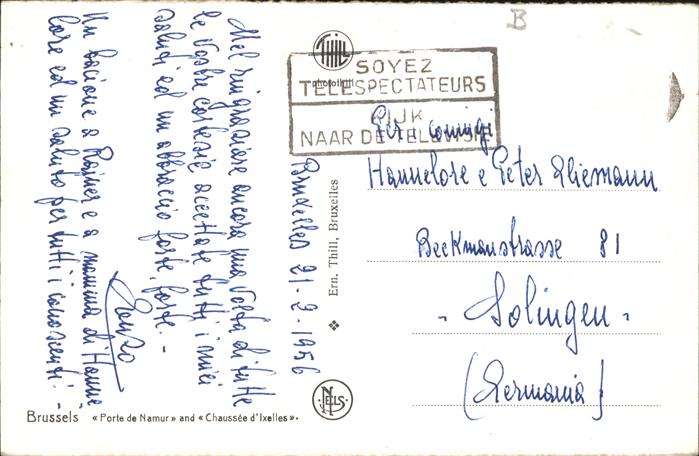 Bruxelles 21-2-1956
Nel ringraziare ancora una volta di tutte
le vostre cortesie accettate tutti i miei
saluti ed un abbraccio forte, forte. -
Renzo
Un bacione a Rainer e a mamma di Hanne
lore ed un saluto per tutti i conoscenti. -
B
THILL
photothill
SOYEZ
TELESPECTATEURS
KIJK
NAAR DE TELEVISIE
Per i coniugi
Hannelore e Peter Kliemann
Beckmanstrasse 81
- Solingen -
(Germania)
Ern. Thill, Bruxelles
NELS
Brussels « Porte de Namur » and « Chaussée d'Ixelles ».